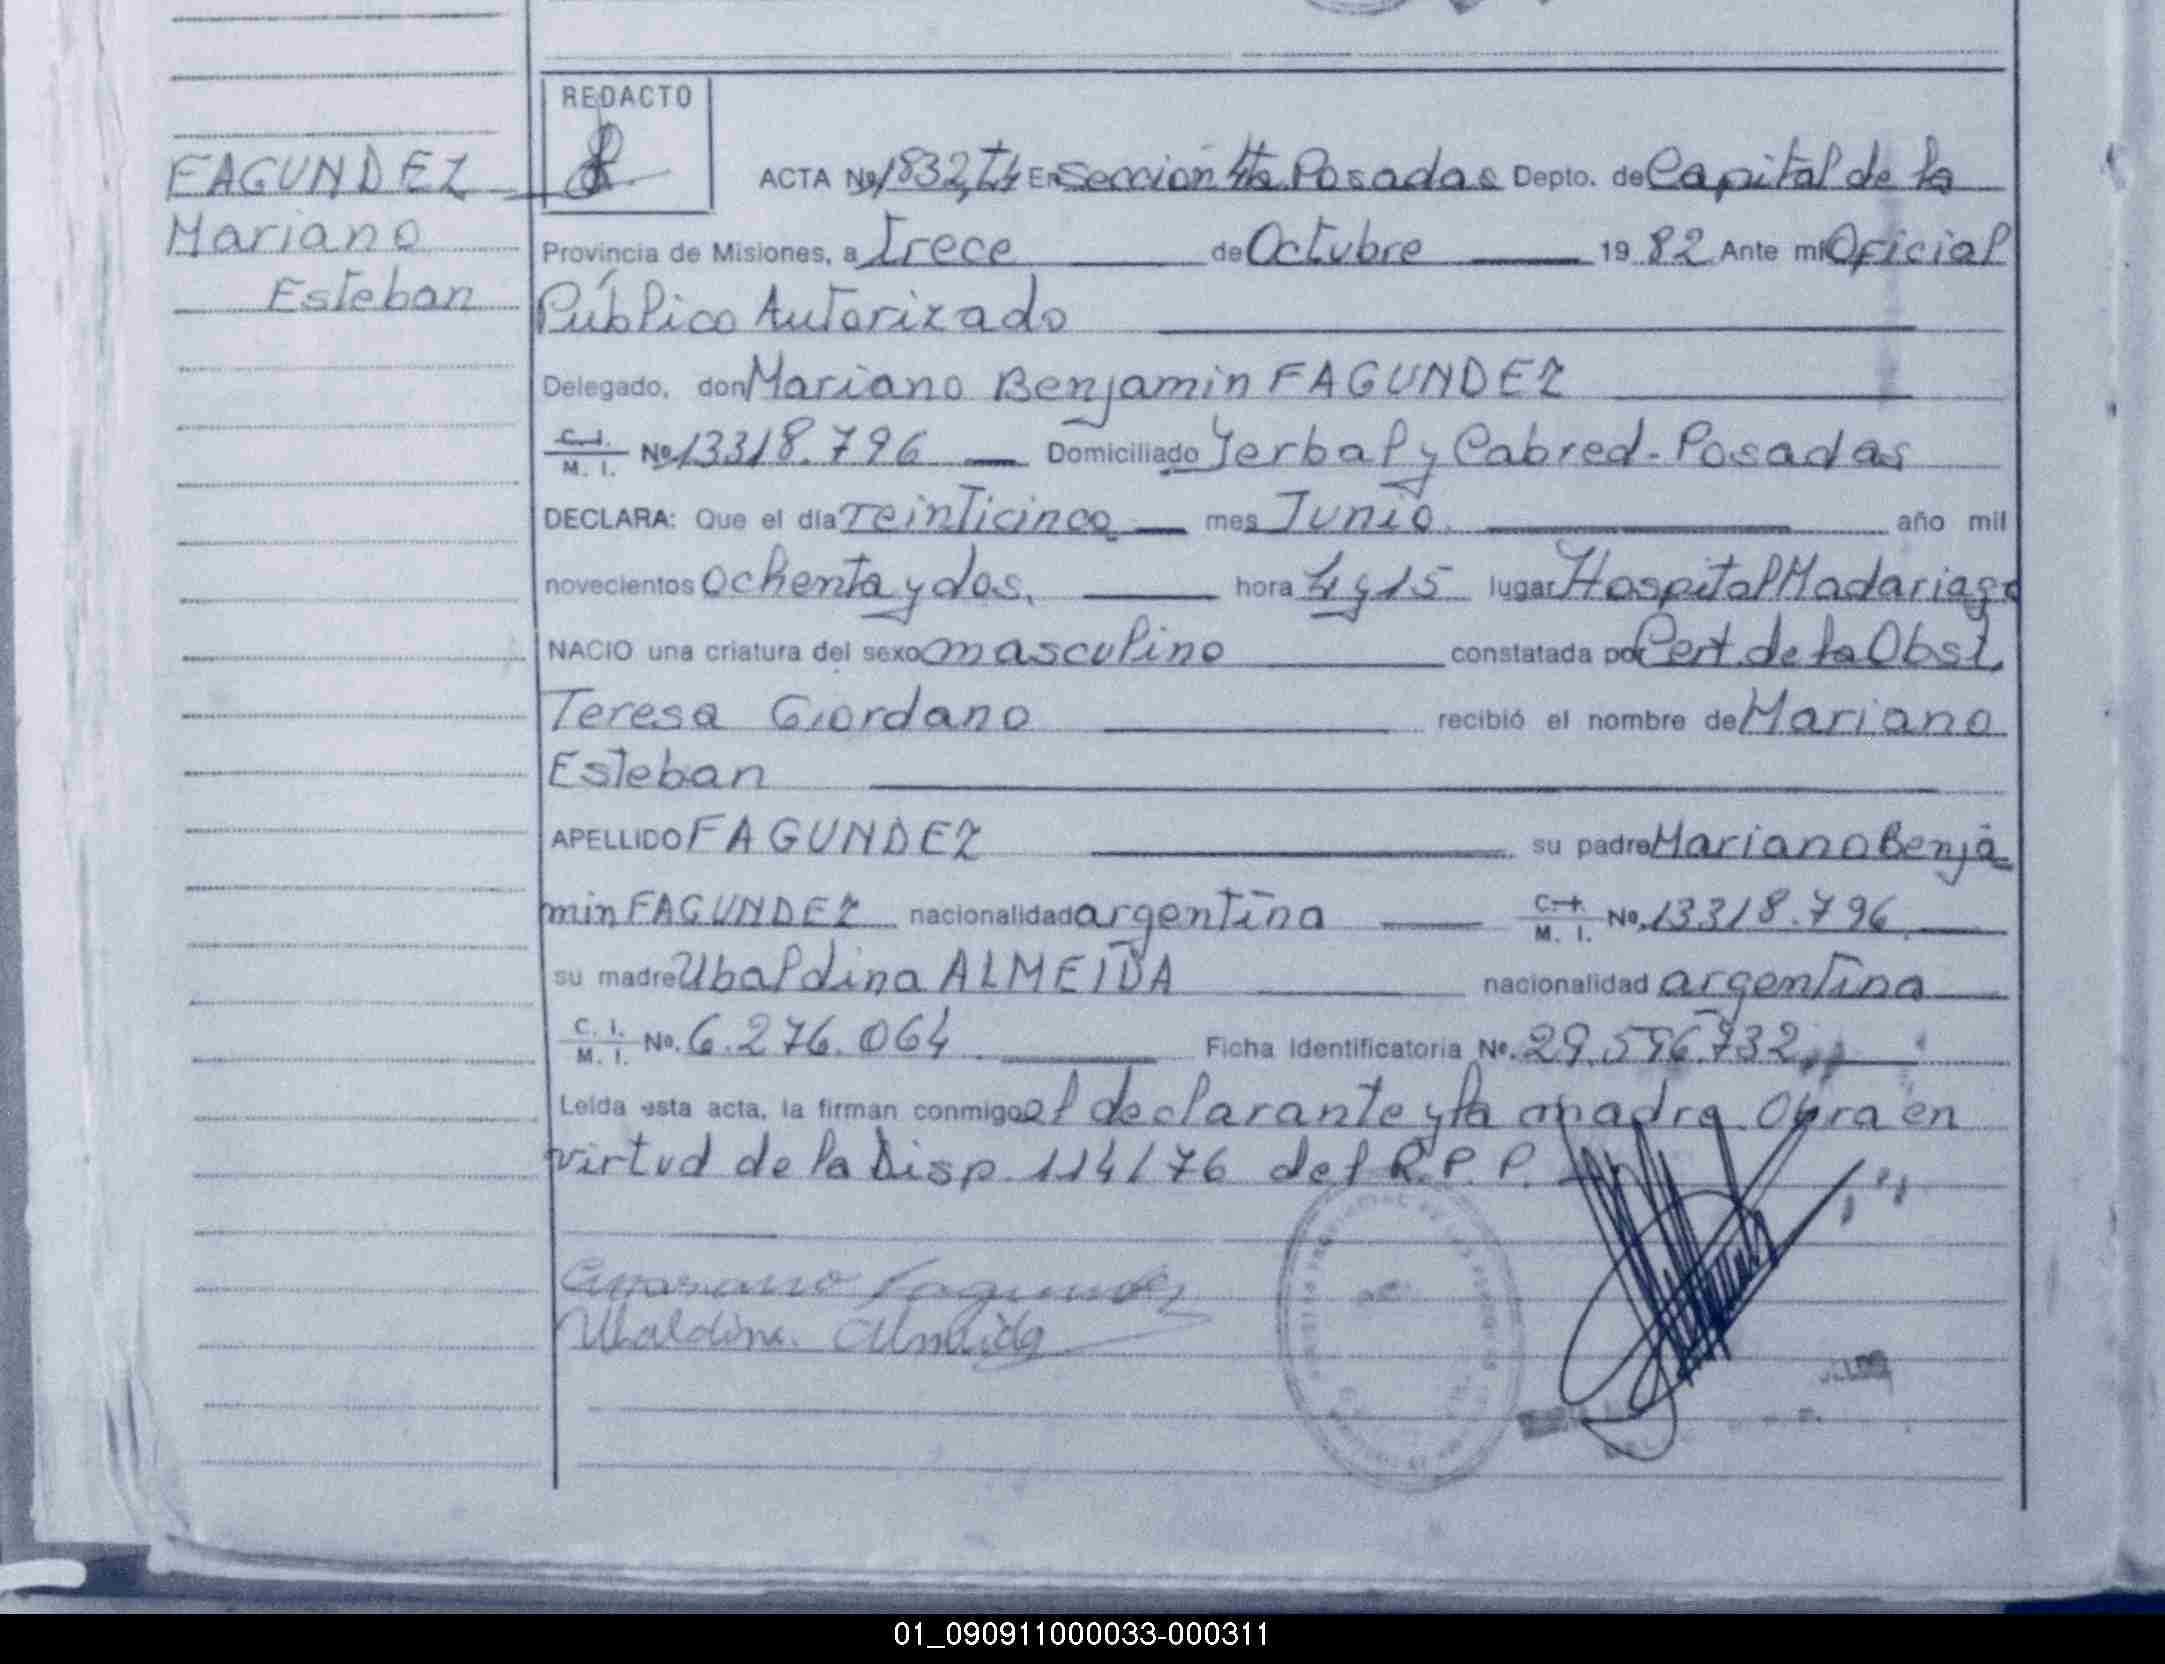 REDACTO
FAGUNDEZ
Mariano
Esteban
ACTA No 1832, T4 En Sección 4ta Posadas Depto. de Capital de la
Provincia de Misiones, a Trece de Octubre 19 82 Ante mí Oficial
Público Autorizado
Delegado, don Mariano Benjamin FAGUNDEZ
C. I.
M. I. No 13318.796 Domiciliado Yerbal y Cabred - Posadas
DECLARA: Que el día veinticinco mes Junio año mil
novecientos ochenta y dos, hora 4 y 15 lugar Hospital Madariaga
NACIO una criatura del sexo masculino constatada por Cert. de la Obst.
Teresa Giordano recibió el nombre de Mariano
Esteban
APELLIDO FAGUNDEZ su padre Mariano Benja
min FAGUNDEZ nacionalidad argentina C. I.
M. I. No. 13318.796
su madre Ubaldina ALMEIDA nacionalidad argentina
C. I.
M. I. No. 6.276.064 Ficha Identificatoria No. 29.596.732
Leída esta acta, la firman conmigo el declarante y la madre Obra en
virtud de la Disp. 114/76 del R.P.P.
Mariano Fagundez
Ubaldina Almeida
01_090911000033-000311